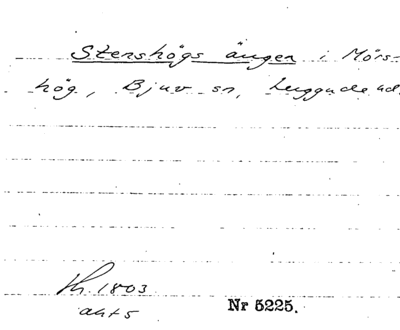 Stenshögs ängen i Mörs-
hög, Bjuv sn, Luggude hd.
1803
akt 5
Nr 5225.